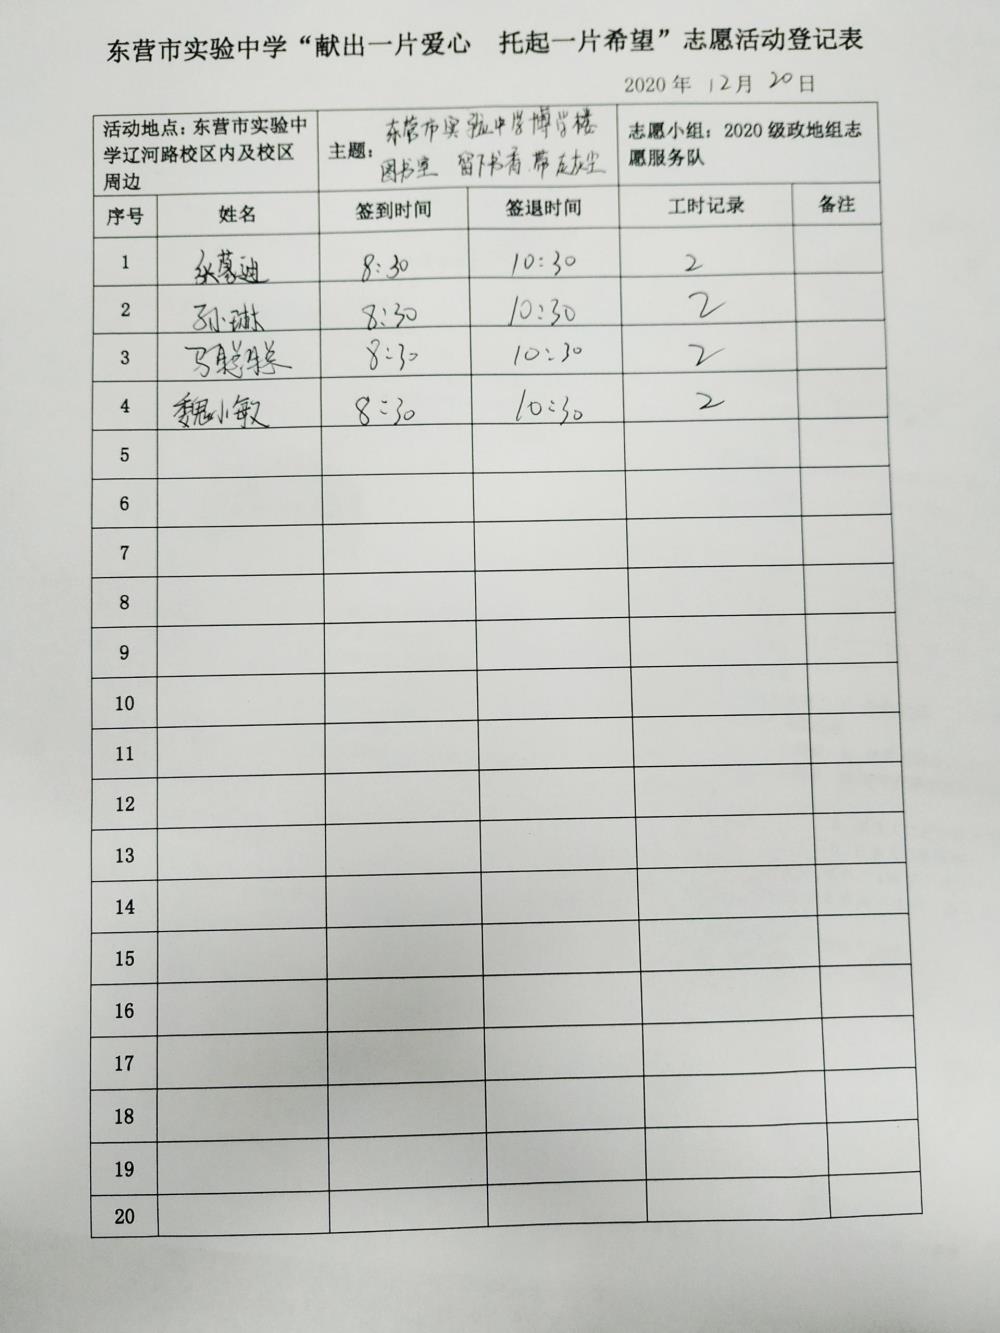 东营市实验中学“献出一片爱心 托起一片希望”志愿活动登记表
2020年 12月 20日
活动地点：东营市实验中
学辽河路校区内及校区
周边
主题：
东营市实验中学博学楼
图书室 留下书香 带走灰尘
志愿小组：2020级政地组志
愿服务队
序号 姓名 签到时间 签退时间 工时记录 备注
1 张蒙迪 8:30 10:30 2
2 孙琳 8:30 10:30 2
3 马聪聪 8:30 10:30 2
4 魏小敏 8:30 10:30 2
5
6
7
8
9
10
11
12
13
14
15
16
17
18
19
20